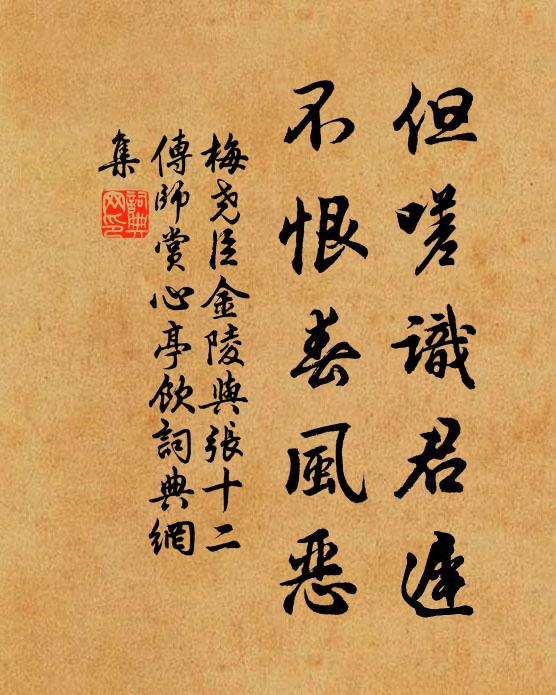 但嗟識君遲
不恨春風惡
梅堯臣金陵與張十二
傳師賞心亭飲詞典網
集
詞典網印